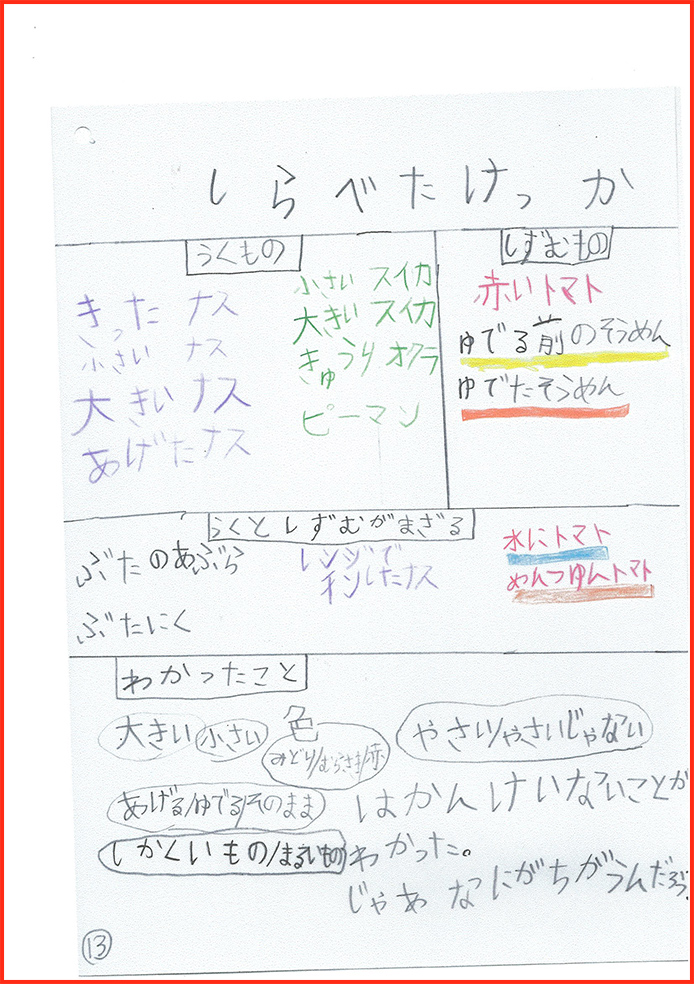 しらべたけっか
うくもの
きった ナス
小さい ナス
大きい ナス
あげたナス
小さい スイカ
大きい スイカ
きゅうり オクラ
ピーマン
しずむもの
赤いトマト
ゆでる前のそうめん
ゆでたそうめん
うくとしずむがまざる
ぶたのあぶら
ぶたにく
レンジで
チンしたナス
水にトマト
めんつゆんトマト
わかったこと
大きい 小さい 色
みどり/むらさき/赤
やさい/やさいじゃない
あげる/ゆでる/そのまま
しかくいもの/まるいもの
はかんけいないことが
わかった。
じゃあ なにがちがうんだろう
13